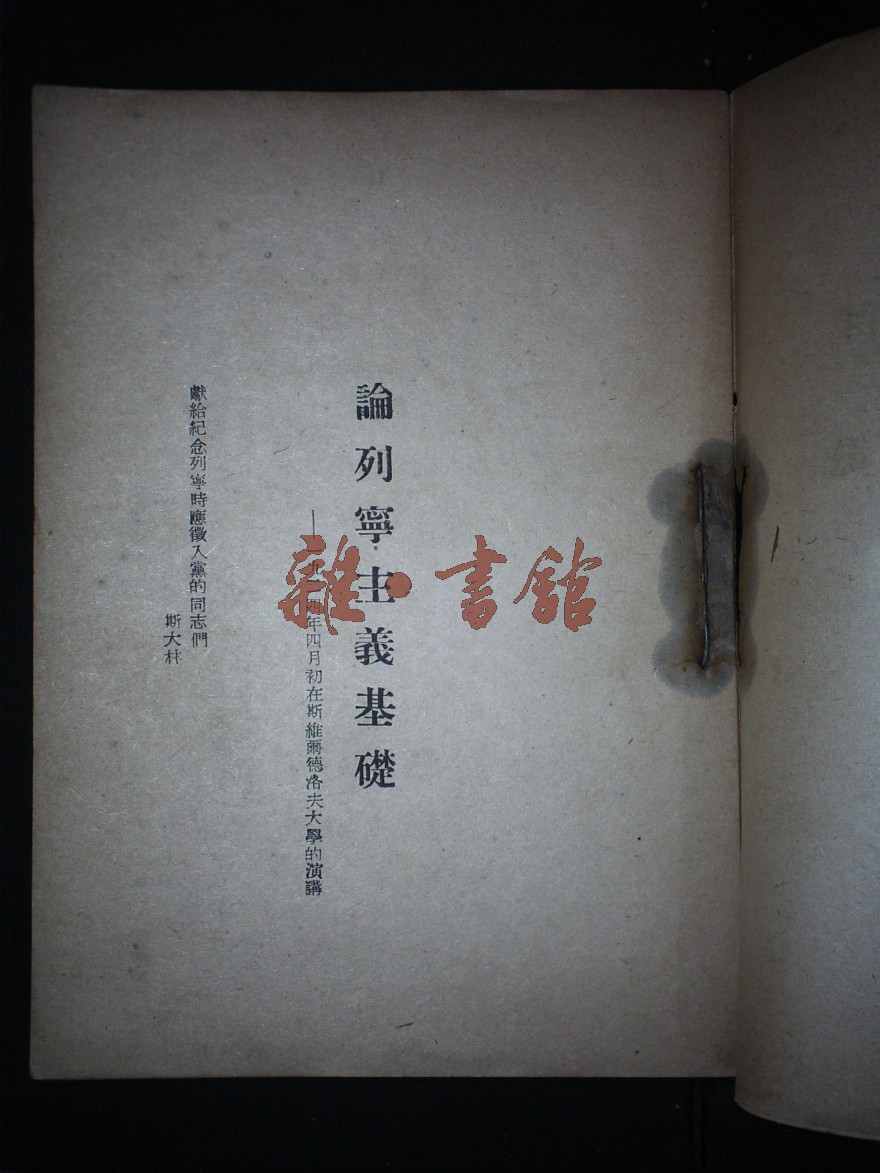 論列寧主義基礎
——一九二四年四月初在斯維爾德洛夫大學的演講
獻給紀念列寧時應徵入黨的同志們
斯大林
雜·書館